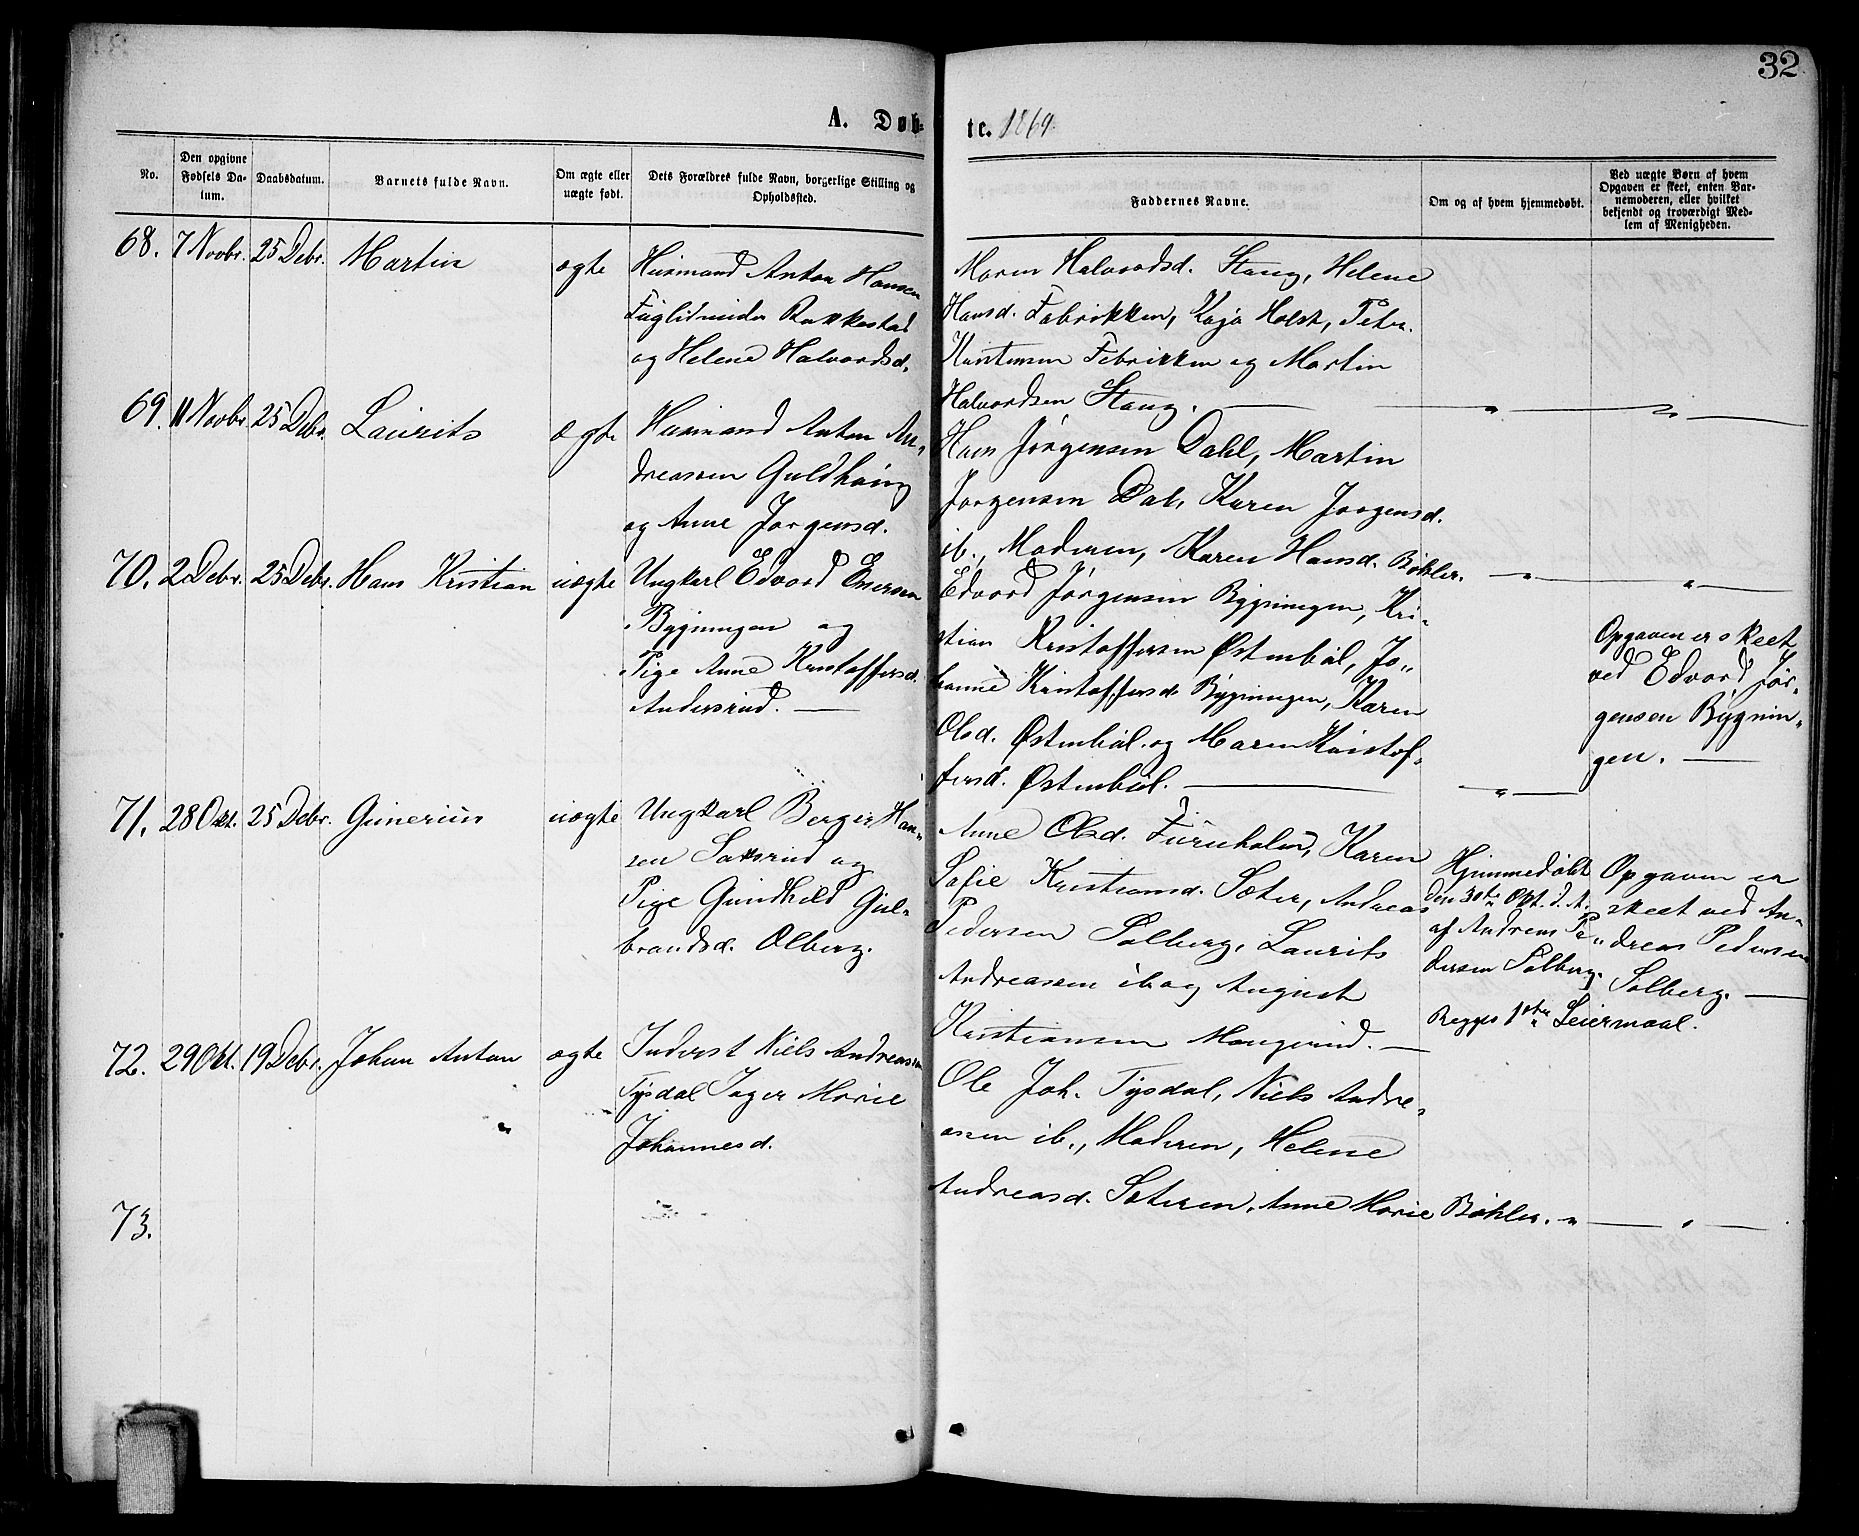 32
A. Døb-
te. 1869.
No.
Den opgivne
Fødsels Da-
tum.
Daabsdatum.
Barnets fulde Navn.
Om ægte eller
uægte født.
Dets Forældres fulde Navn, borgerlige Stilling og
Opholdssted.
Faddernes Navne.
Om og af hvem hjemmedøbt.
Ved uægte Børn af hvem
Opgaven er skeet, enten Bar-
nemoderen, eller hvilket
bekjendt og troværdigt Med-
lem af Menigheden.
68. 7 Novbr. 25 Debr. Martin ægte
Husmand Anton Hansen
Rakkestad
og Helene Halvordsd.
Maren Halvordsd. Stang, Helene
Hansd. Fabrikken, Kaja Holst, Peter
Kristensen Fabrikken og Martin
Halvordsen Stang.
69. 11 Novbr. 25 Debr. Laurits ægte
Husmand Anton An-
dreassen Guldhaug
og Anne Jørgensd.
Hans Jørgensen Dahl, Martin
Jørgensen Dal, Karen Jørgensd.
ib., Moderen, Karen Hansd. Bøhler.
70. 2 Debr. 25 Debr. Hans Kristian uægte
Ungkarl Edvard Enersen
Bygningen og
Pige Anne Kristoffersd.
Andersrud.
Edvard Jørgensen Bygningen, Kri-
stian Kristoffersen Østenbøl, Jo-
hanne Kristoffersd. Bygningen, Karen
Olsd. Østenbøl og Maren Kristof-
fersd. Østenbøl.
Opgaven er skeet
ved Edvard Jør-
gensen Bygnin-
gen.
71. 28 Okt. 25 Debr. Gunerius uægte
Ungkarl Berger Han-
sen Saxrud og
Pige Gundhild Gul-
brandsd. Olberg.
Anne Olsd. Furuholm, Karen
Sofie Kristiansd. Sæter, Andreas
Pedersen Solberg, Laurits
Andreassen ib. og August
Kristiansen Mangerud.
Hjemmedøbt
den 30te Okt. d. A.
af Andreas Pe-
dersen Solberg.
Begges 1ste Leiermaal.
Opgaven er
skeet ved An-
dreas Pedersen
Solberg.
72. 29 Okt. 19 Debr. Johan Anton ægte
Inderst Niels Andreassen
Tysdal Inger Marie
Johannesd.
Ole Joh. Tysdal, Niels Andre-
assen ib., Moderen, Helene
Andreasd. Sæteren, Anne Marie Bøhler.
73.